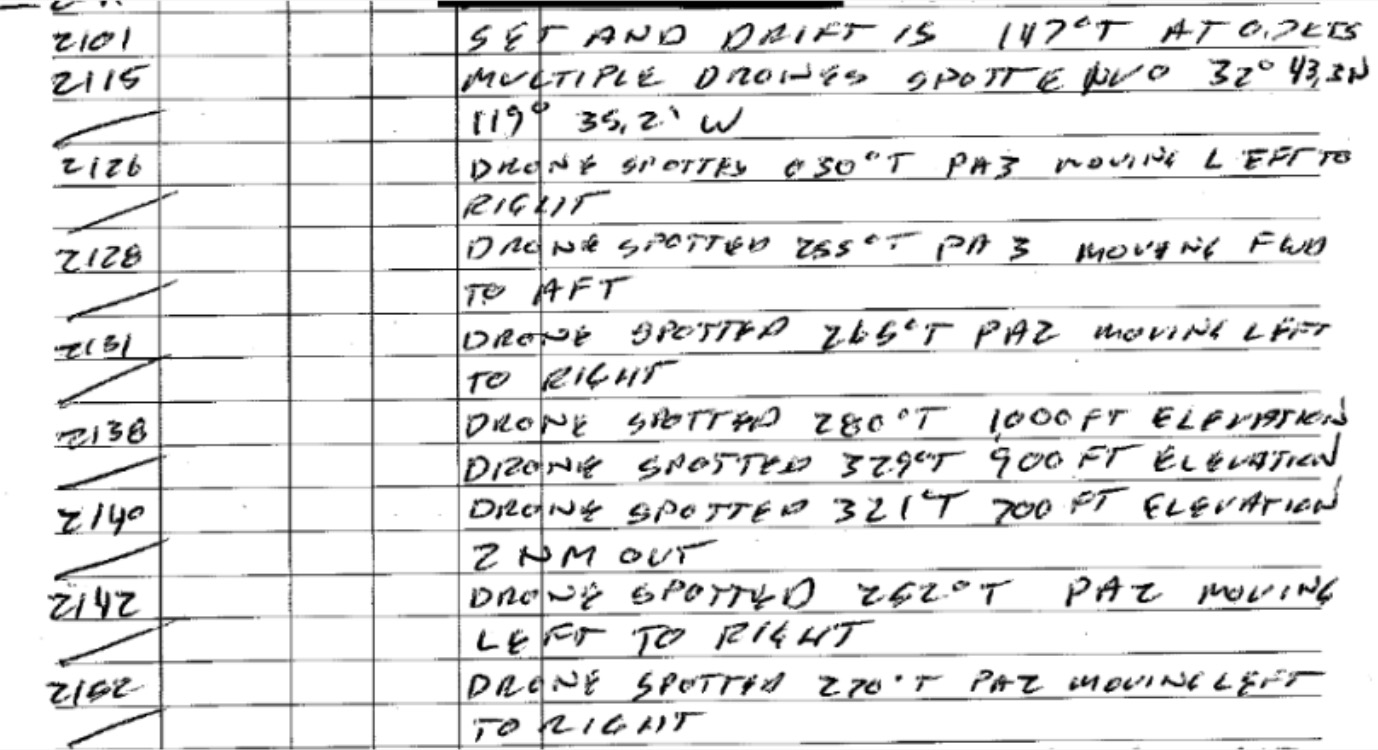 2101 SET AND DRIFT IS 147°T AT 0.7KTS
2115 MULTIPLE DRONES SPOTTE IVO 32° 43.3N
119° 35.2' W
2126 DRONE SPOTTED 030°T PA3 MOVING LEFT TO
RIGHT
2128 DRONE SPOTTED 255°T PA 3 MOVING FWD
TO AFT
2131 DRONE SPOTTED 265°T PA2 MOVING LEFT
TO RIGHT
2138 DRONE SPOTTED 280°T 1000 FT ELEVATION
DRONE SPOTTED 329°T 900 FT ELEVATION
2140 DRONE SPOTTED 321°T 700 FT ELEVATION
2 NM OUT
2142 DRONE SPOTTED 262°T PA2 MOVING
LEFT TO RIGHT
2152 DRONE SPOTTED 270°T PA2 MOVING LEFT
TO RIGHT